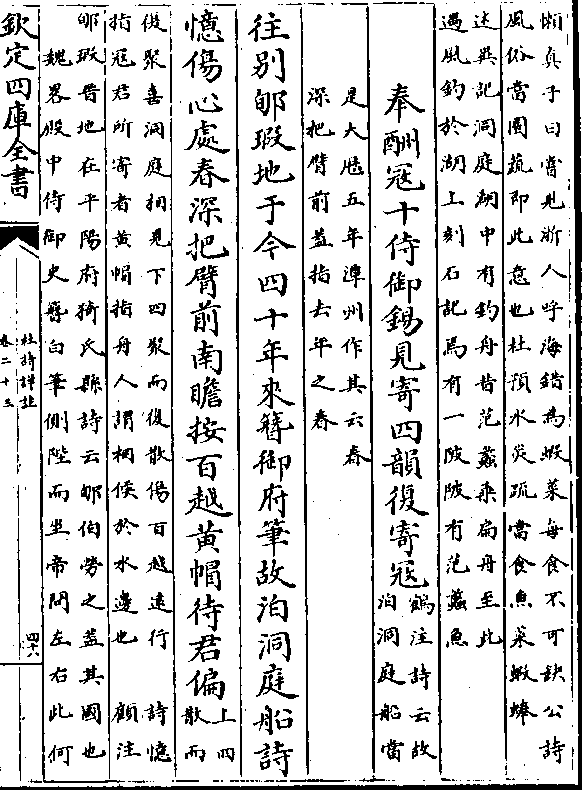 懶真子曰嘗見浙人呼海錯為蝦菜每食不可缺公詩
風俗當園蔬即此意也杜預水災疏當食魚菜蝦蜯
述異記洞庭湖中有釣舟昔范蠡乗扁舟至此
遇風釣於湖上刻石記焉有一陂陂有范蠡魚
奉酬冦十侍御錫見寄四韻復寄冦
鶴注詩云故
泊洞庭船當
是大厯五年潭州作其云春
深把臂前盖指去年之春
往别郇瑕地于今四十年來簪御府筆故泊洞庭船詩
憶傷心處春深把臂前南瞻按百越黄帽待君偏
上四
散而
復聚喜洞庭相見下四聚而復散傷百越逺行 詩憶
指冦君所寄者黄帽指舟人謂相候於水邊也 顧注
郇瑕昔地在平陽府猗氏縣詩云郇伯勞之葢其國也
魏畧殿中侍御史簪白筆側陛而坐帝問左右此何
欽定四庫全書
杜詩詳註
卷二十三
四十六